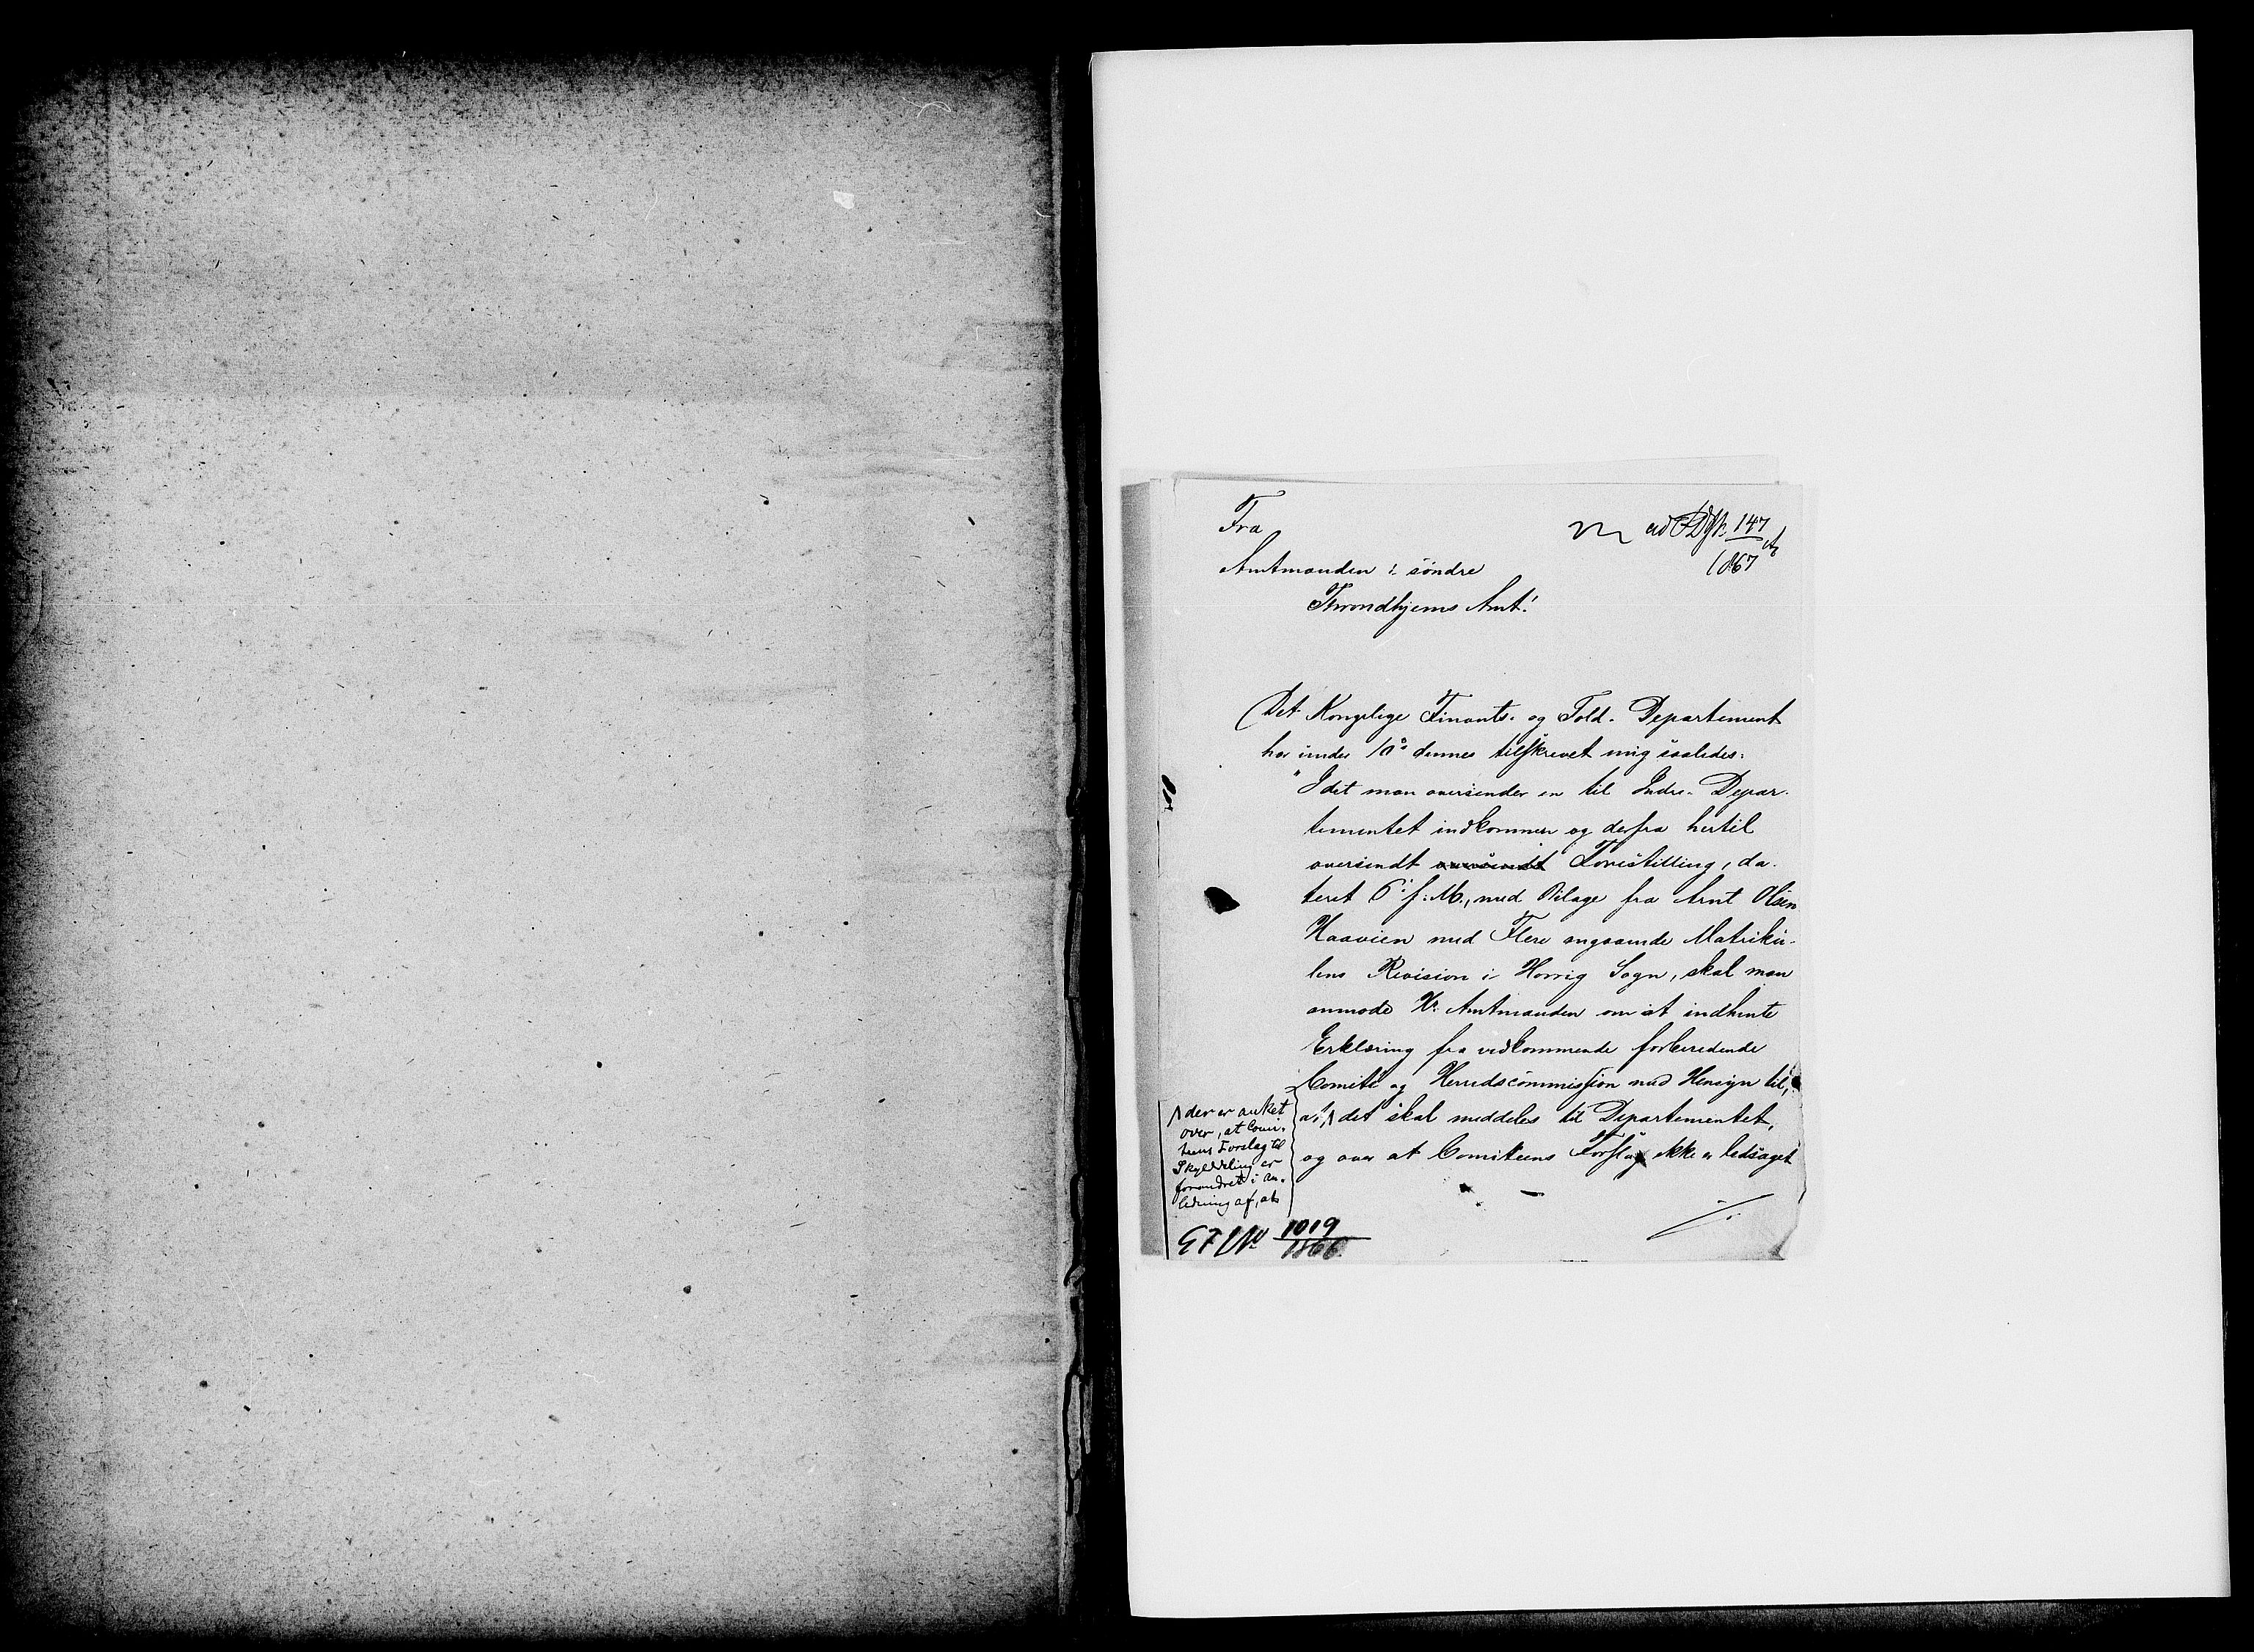 Fra
Amtmanden i søndre
Throndhjems Amt.
ad 147
1867
Det Kongelige Finants- og Told-Departement
har under 10de dennes tilskrevet mig saaledes:
"Idet man oversender en til Indre-Depar-
tementet indkommen og derfra hertil
oversendt oversendt Forestilling, da-
teret 6 f: M., med Bilage fra Arnt Olsen
Haavien med Flere angaaende Matriku-
lens Revision i Horrig Sogn, skal man
anmode Hr. Amtmanden om at indhente
Erklæring fra vedkommende forberedende
Comite og Herredscommission med Hensyn til,
at, det skal meddeles til Departementet,
og over at Comiteens Forslag ikke er ledsaget
der er anket
over, at Comi-
teens Forslag til
Skylddeling er
forandret i An-
ledning af, at
1019
1866.